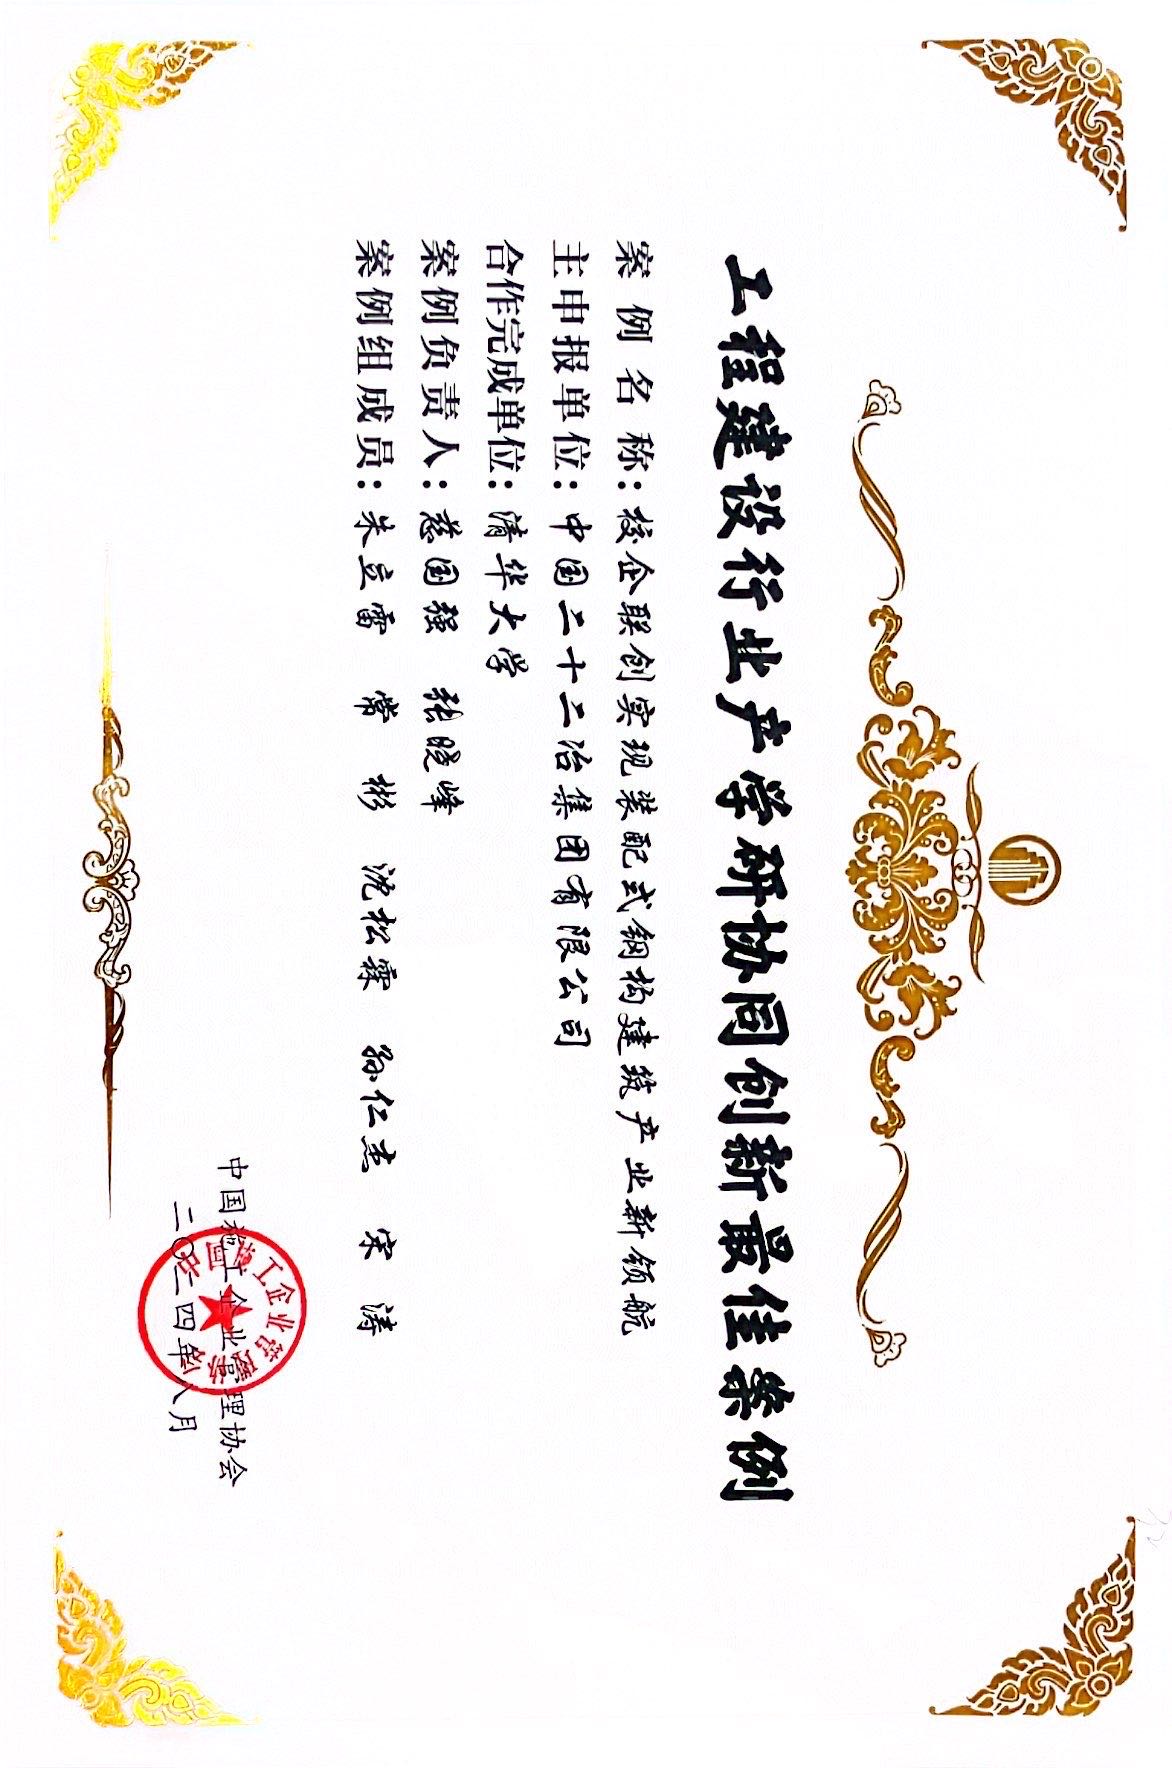 工程建设行业产学研协同创新最佳案例
案例名称：校企联创实现装配式钢构建筑产业新领航
主申报单位：中国二十二冶集团有限公司
合作完成单位：清华大学
案例负责人：慈国强 张晓峰
案例组成员：朱立雷 常彬 沈松霖 孙仁杰 宋涛
中国施工企业管理协会
二〇二四年八月
中国施工企业管理协会